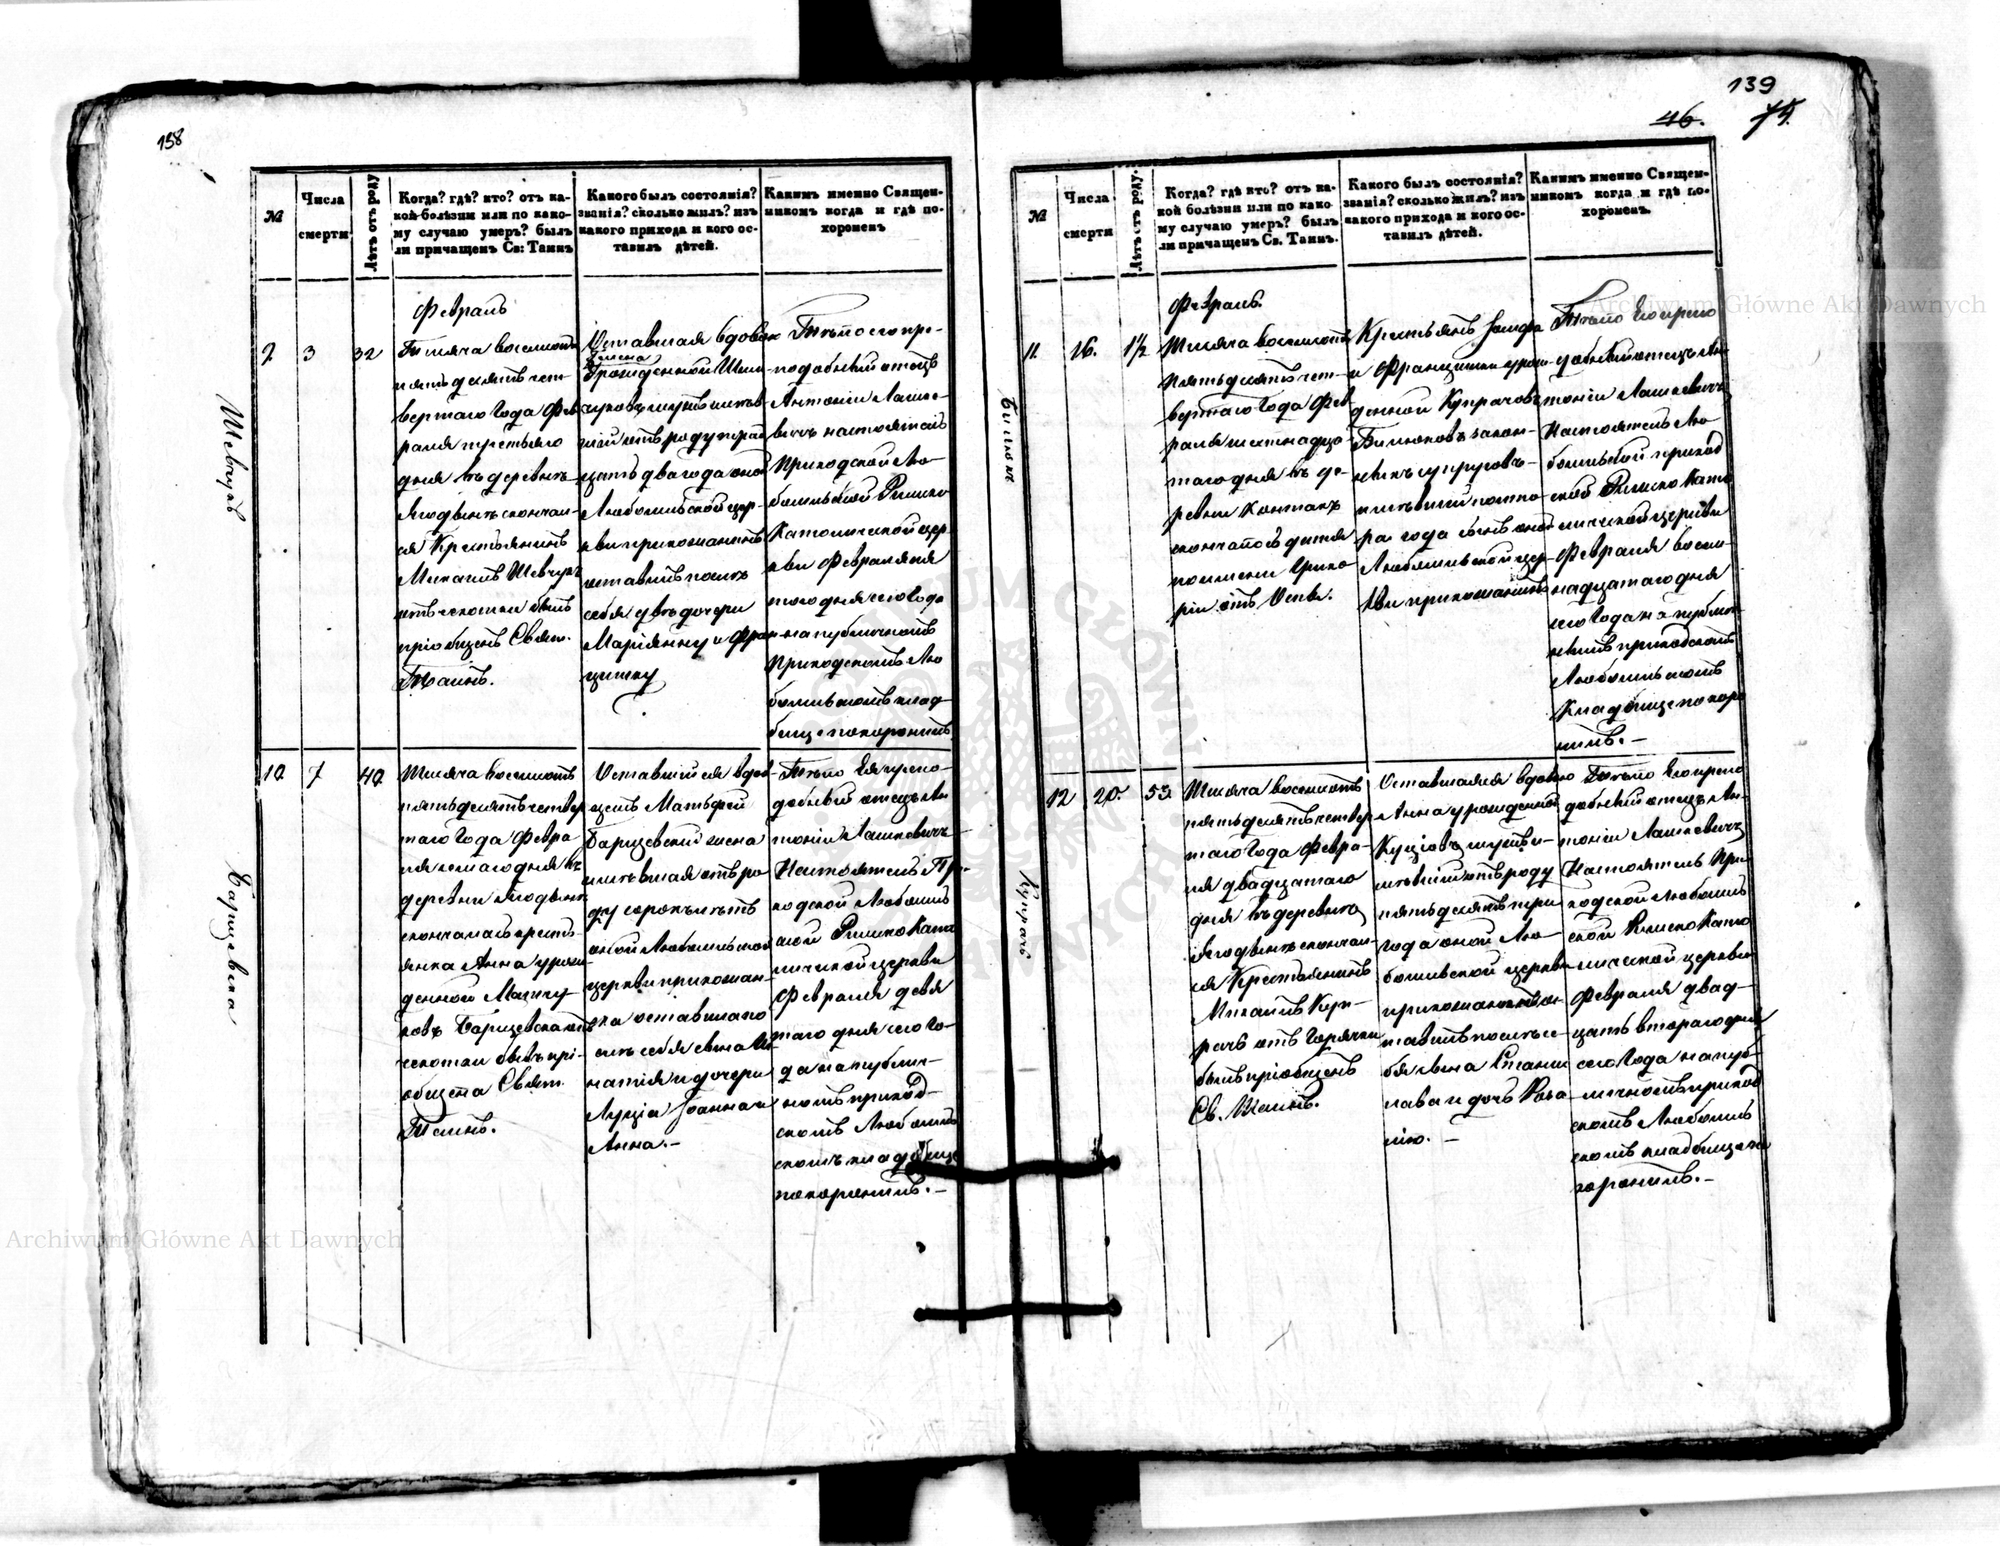 138
№
Числа
смерти
Лѣтъ отъ роду
Когда? гдѣ? кто? отъ ка-
кой болѣзни или по како-
му случаю умеръ? былъ
ли причащенъ Св: Таинъ
Какого былъ состоянія?
званія? сколько жилъ? изъ
какого прихода и кого ос-
тавилъ дѣтей.
Какимъ именно Священ-
никомъ когда и гдѣ по-
хороненъ
Шевчукъ
3
32
Февраль
Тысяча восемьсотъ
пятьдесятъ чет-
вертаго Года Фев
раля третьяго
дня въ деревнѣ
скончал-
ся Крестьянинъ
Михаилъ Шевчукъ
отъ чехотки былъ
пріобщенъ Свят.
Таинъ.
Оставшая вдова
урожденной
цать два года оной
Любомльской цер-
кви прихожанинъ
оставилъ послѣ
себя двѣ дочери
Маріянну и Фран
цишку
Тѣло его пре-
подобный отецъ
Антоній Лашке-
вичъ настоятель
Приходской Лю-
бомльской Римско
Католической цер-
кви Февраля
того дня сего Года
на публичномъ
Приходскомъ Лю
бомльскомъ клад
бищѣ похоронилъ
Барщевска
10
7
40
Тысяча восемьсотъ
пятьдесятъ четвер
таго Года Февра
ля семаго дня въ
деревни
скончалась кресть
янка Анна урож
денной
ковъ Барщевская отъ
чехотки бывъ прі-
общена Свят.
Таинъ.
Оставшійся вдов
цемъ Матѳей
Барщевскій жена
имѣвшая отъ ро
ду сорокъ лѣтъ
оной Любомльской
церкви прихожан-
ка оставила по
слѣ себя сына Иг
натія и дочери
Луція Іоанна и
Анна.-
Тѣло Ея препо-
добный отецъ Ан
тоній Лашкевичъ
Настоятель При-
ходской Любомль
ской Римско Като
лической церкви
Февраля девя
таго дня сего го-
да на публич-
номъ приход-
скомъ Любомль
скомъ кладбищѣ
похоронилъ.-
139
46.
74.
№
Числа
смерти
Лѣтъ отъ роду.
Когда? гдѣ кто? отъ ка-
кой болѣзни или по како
му случаю умеръ? былъ
ли причащенъ Св. Таинъ.
Какого былъ состоянія?
званія? сколько жилъ? изъ
какого прихода и кого ос-
тавилъ дѣтей.
Какимъ именно Священ-
никомъ когда и гдѣ по-
хороненъ.
11.
16.
1½
Февраль.
Тысяча восемьсотъ
пятьдесятъ чет-
вертаго Года Фев
раля шестнадца
таго дня въ де-
ревни
скончалось дитя
по имени Григо
рій отъ Оспы.
Крестьянъ Іосифа
и Францишки урож
денной Купрачовъ
закон-
ныхъ супруговъ
имѣвшій полто
ра года сынъ оной
Любомльской цер-
кви прихожанинъ
Тѣло Его препо
добный отецъ Ан
тоній Лашкевичъ
Настоятель Лю-
бомльской приход
ской Римско Като
лической церкви
Февраля восем
надцатаго дня
сего Года на публич
номъ приходскомъ
Любомльскомъ
Кладбищѣ похоро
нилъ.-
Купрачъ
12
20.
53.
Тысяча восемьсотъ
пятьдесятъ четвер
таго Года Февра-
ля двадцатаго
дня въ деревнѣ
скончал-
ся Крестьянинъ
Михаилъ Куп-
рачъ отъ Горячки
былъ пріобщенъ
Св. Таинъ.
Оставшаяся вдовою
Анна урожденной
мужъ и-
мѣвшій отъ роду
пятьдесятъ три
года оной Лю-
бомльской церкви
прихожанинъ ос-
тавилъ послѣ се-
бя сына Стани
слава и дочь Роза
лію.-
Тѣло Его препо
добный отецъ Ан-
тоній Лашкевичъ
Настоятель При
ходской Любомль
ской Римско Като
лической церкви
Февраля двад-
цать втораго дня
сего Года на пуб-
личномъ приход
скомъ Любомль
скомъ кладбищѣ по
хоронилъ.-
Archiwum Główne Akt Dawnych
Archiwum Główne Akt Dawnych